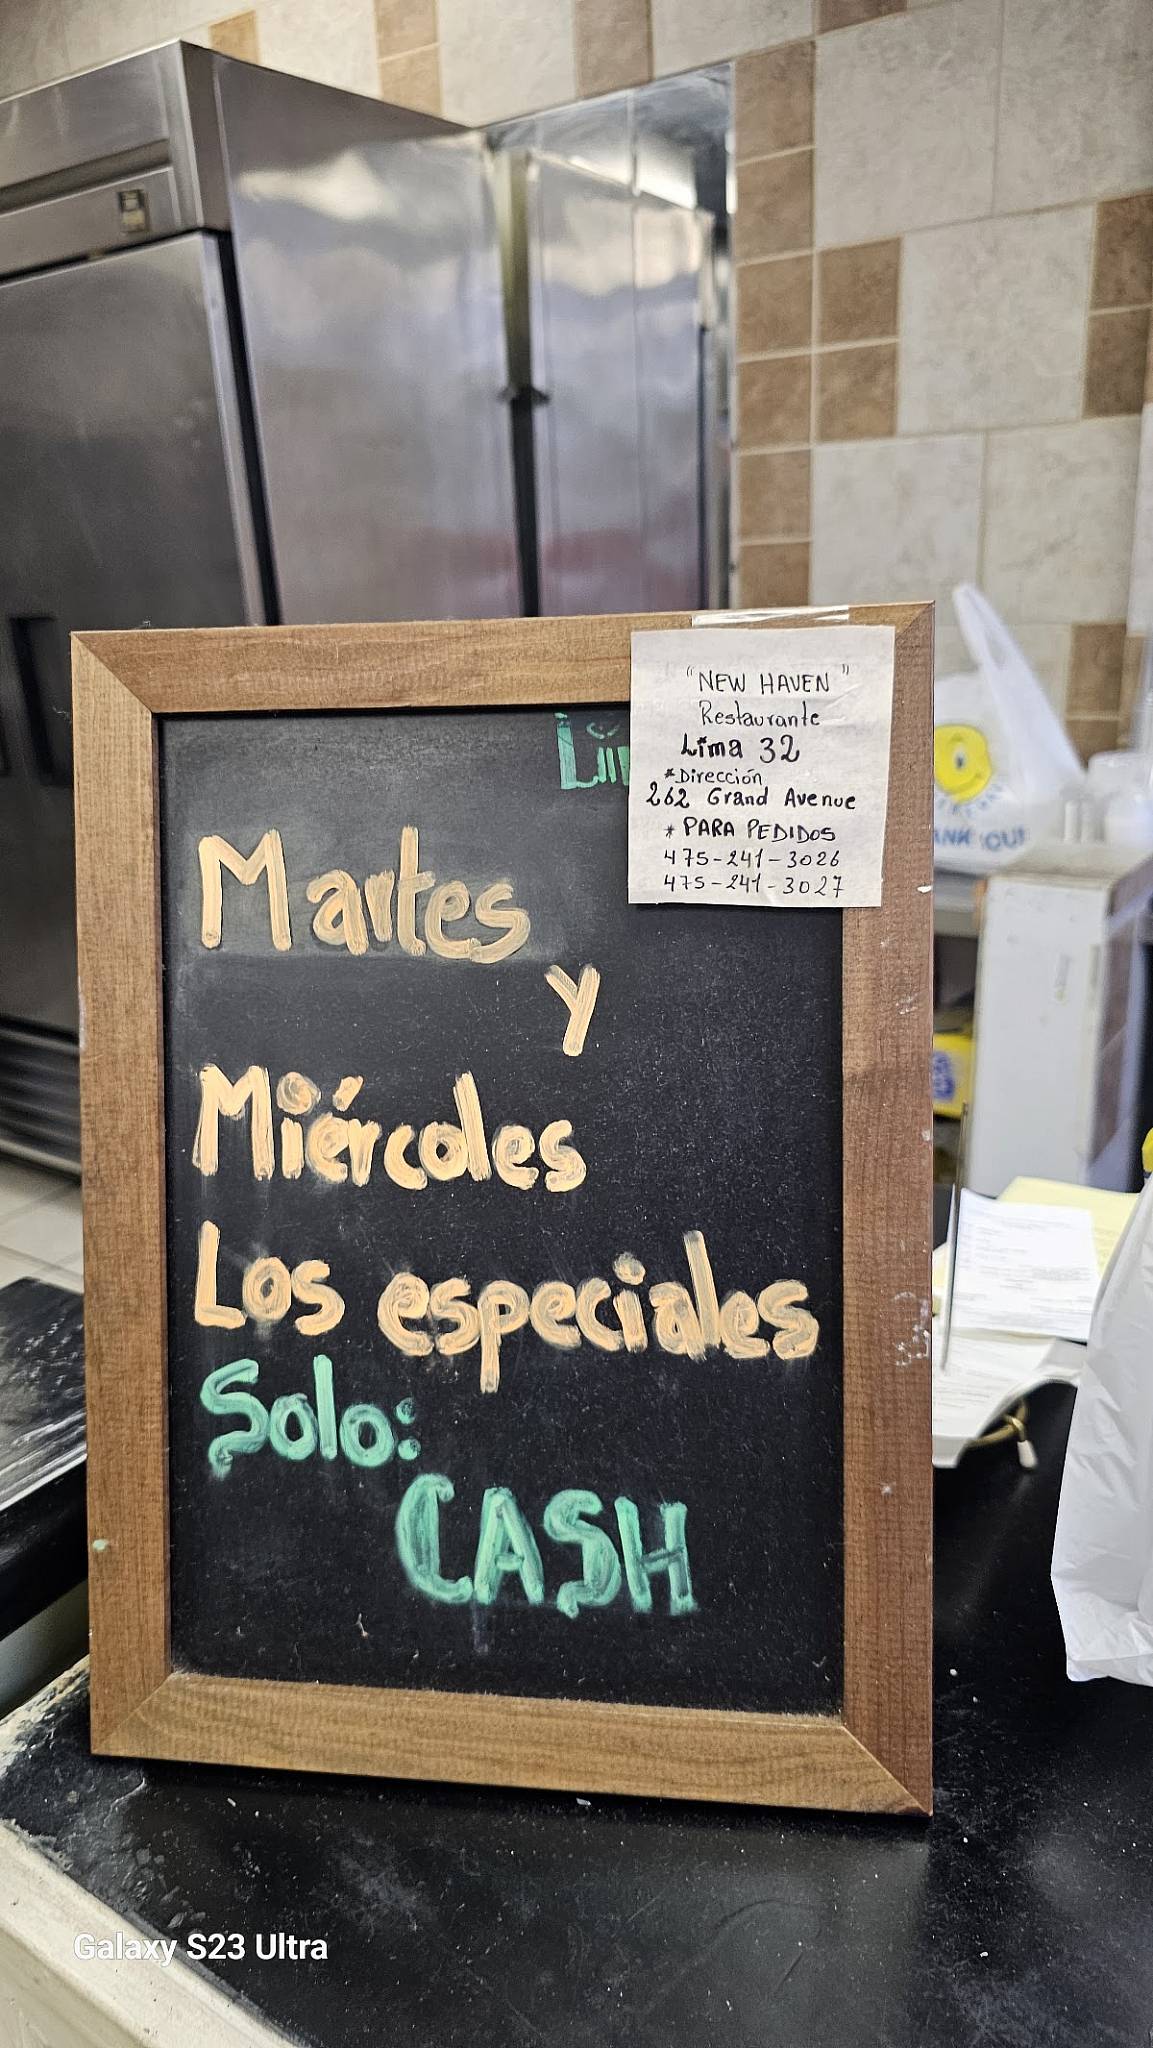 "NEW HAVEN"
Restaurante
Lima 32
*Dirección
262 Grand Avenue
* PARA PEDIDOS
475-241-3026
475-241-3027
Martes
y
Miércoles
Los especiales
Solo:
CASH
Galaxy S23 Ultra